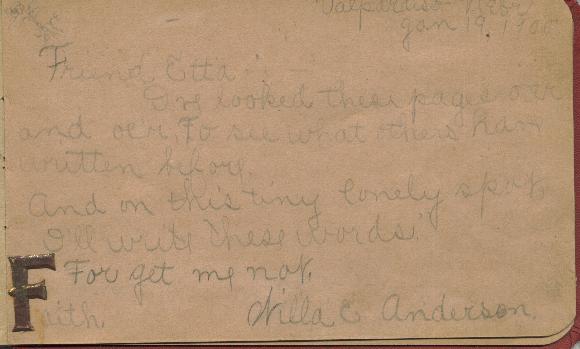 Valparaiso Nebr
Jan 19, 1906
Friend Etta:—
I've looked these pages o'er
and o'er, To see what others have
written before.
And on this tiny lonely spot,
I'll write these words:
For get me not.
Faith. Nilla C Anderson.